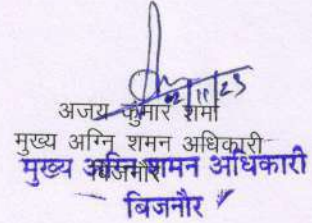 02/11/23
अजय कुमार शर्मा
मुख्य अग्नि शमन अधिकारी
बिजनौर
मुख्य अग्नि शमन अधिकारी
बिजनौर